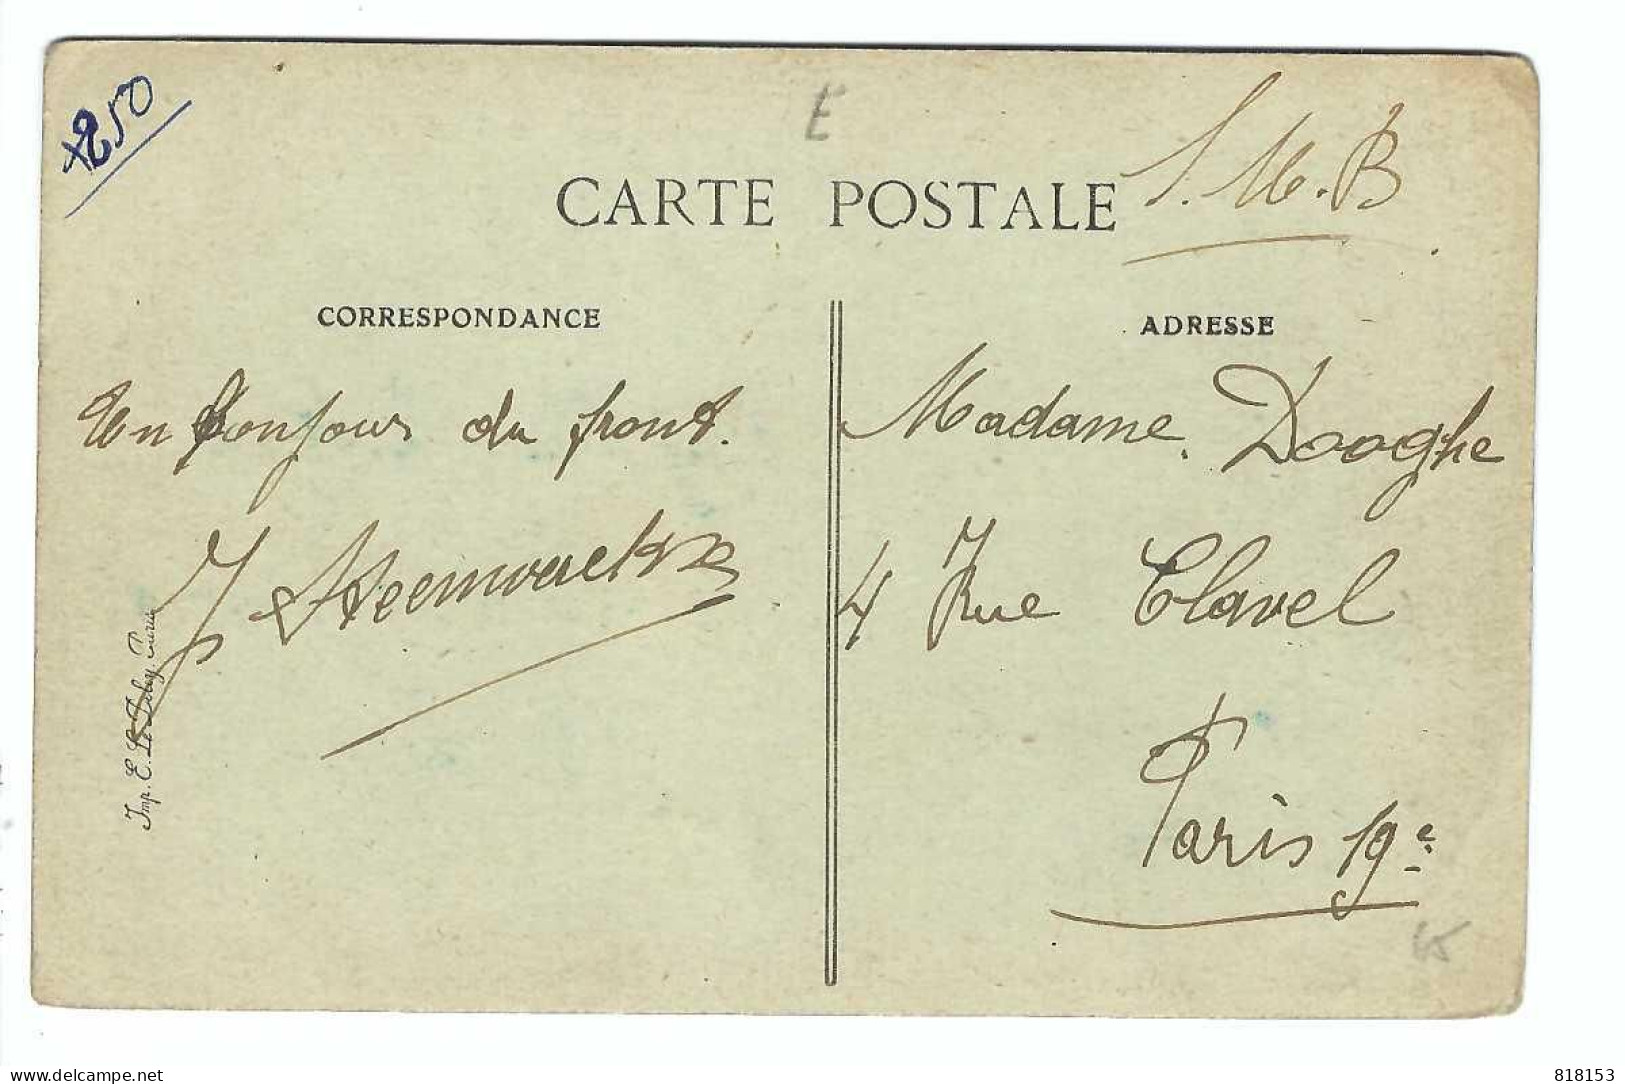 +250
E
S.M.B.
CARTE POSTALE
CORRESPONDANCE
ADRESSE
Un bonjour du front.
J
Madame. Dooghe
4 Rue Clavel
Paris 19e
Imp. E. Le Deley, Paris
delcampe.net
818153